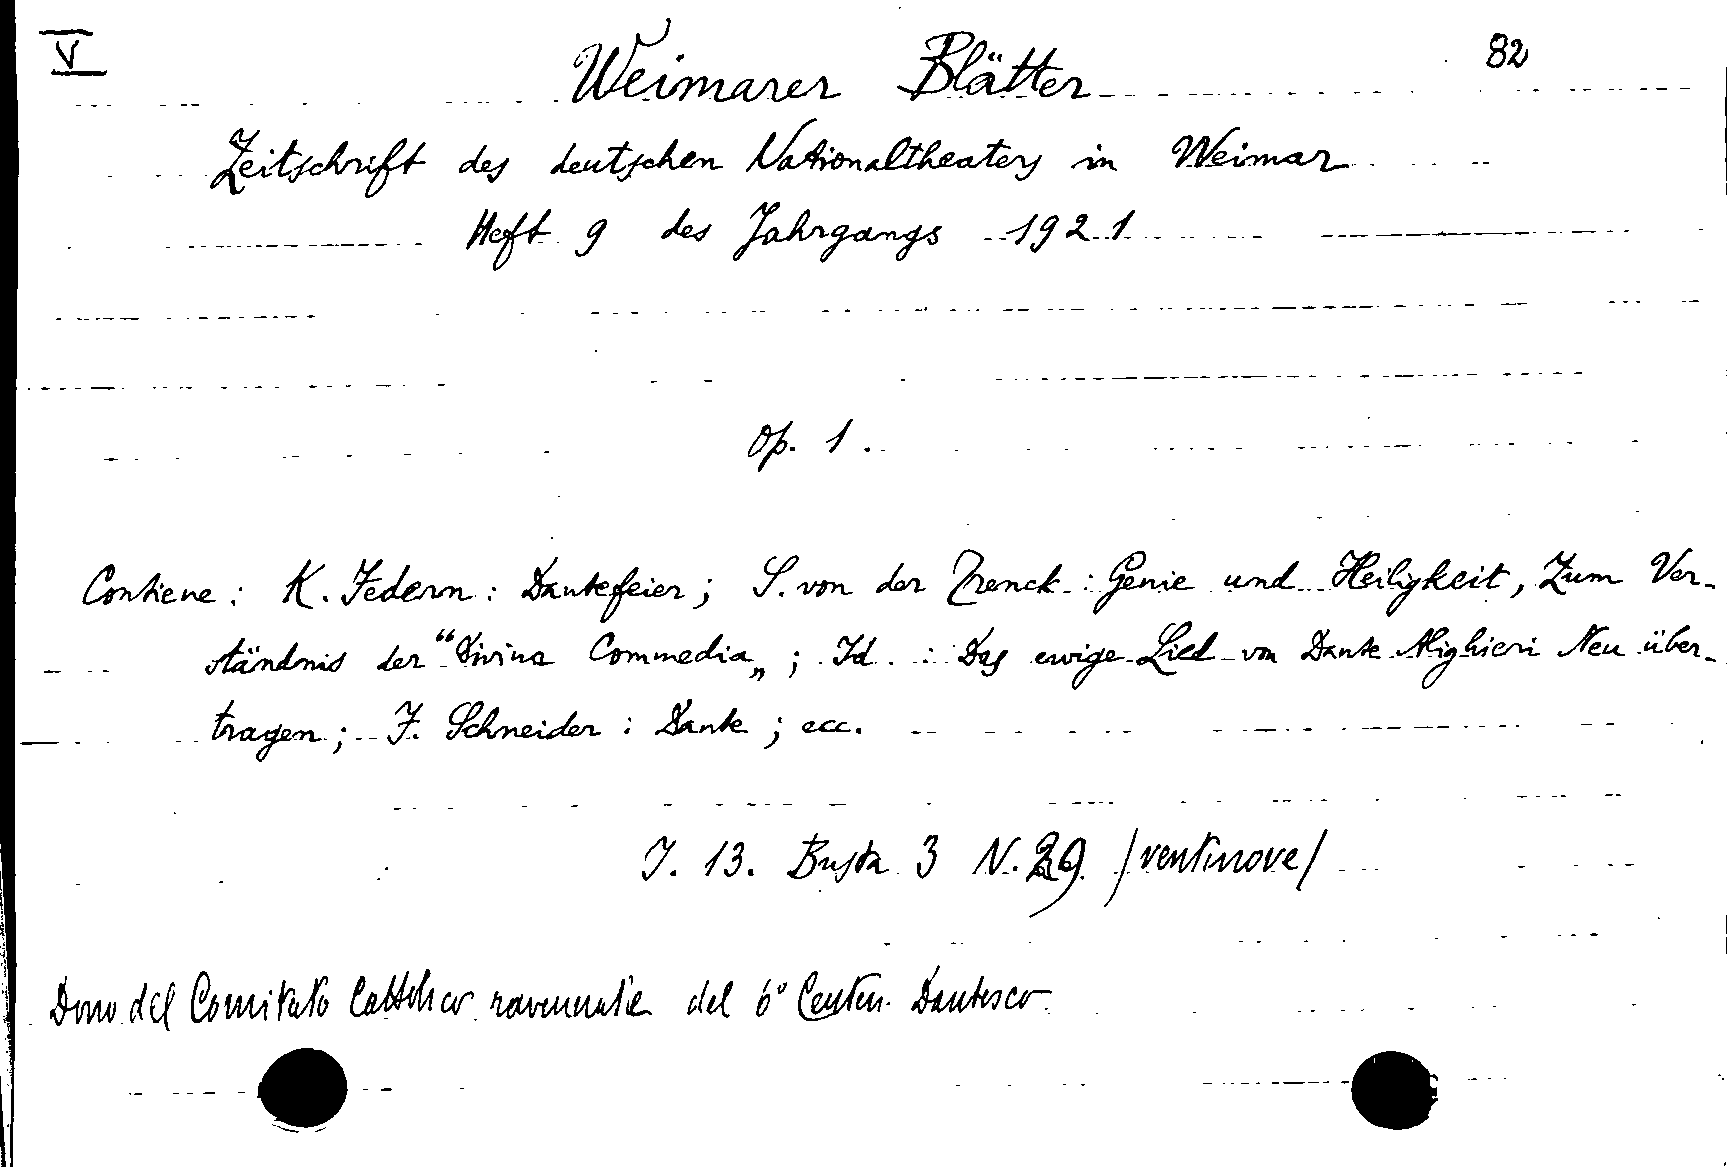 V 82
Weimarer Blätter
Zeitschrift des deutschen Nationaltheaters in Weimar
Heft 9 des Jahrgangs 1921
Op. 1.
Contiene: K. Federn: Dantefeier; S. von der Trenck: Genie und Heiligkeit, Zum Ver-
ständnis der "Divina Commedia„; Id.: Das ewige Lied von Dante Alighieri Neu über-
tragen; F. Schneider: Dante; ecc.
I. 13. Busta 3 N. 29 /ventinove/
Dono del Comitato Cattolico ravennate del 6° Centen. Dantesco